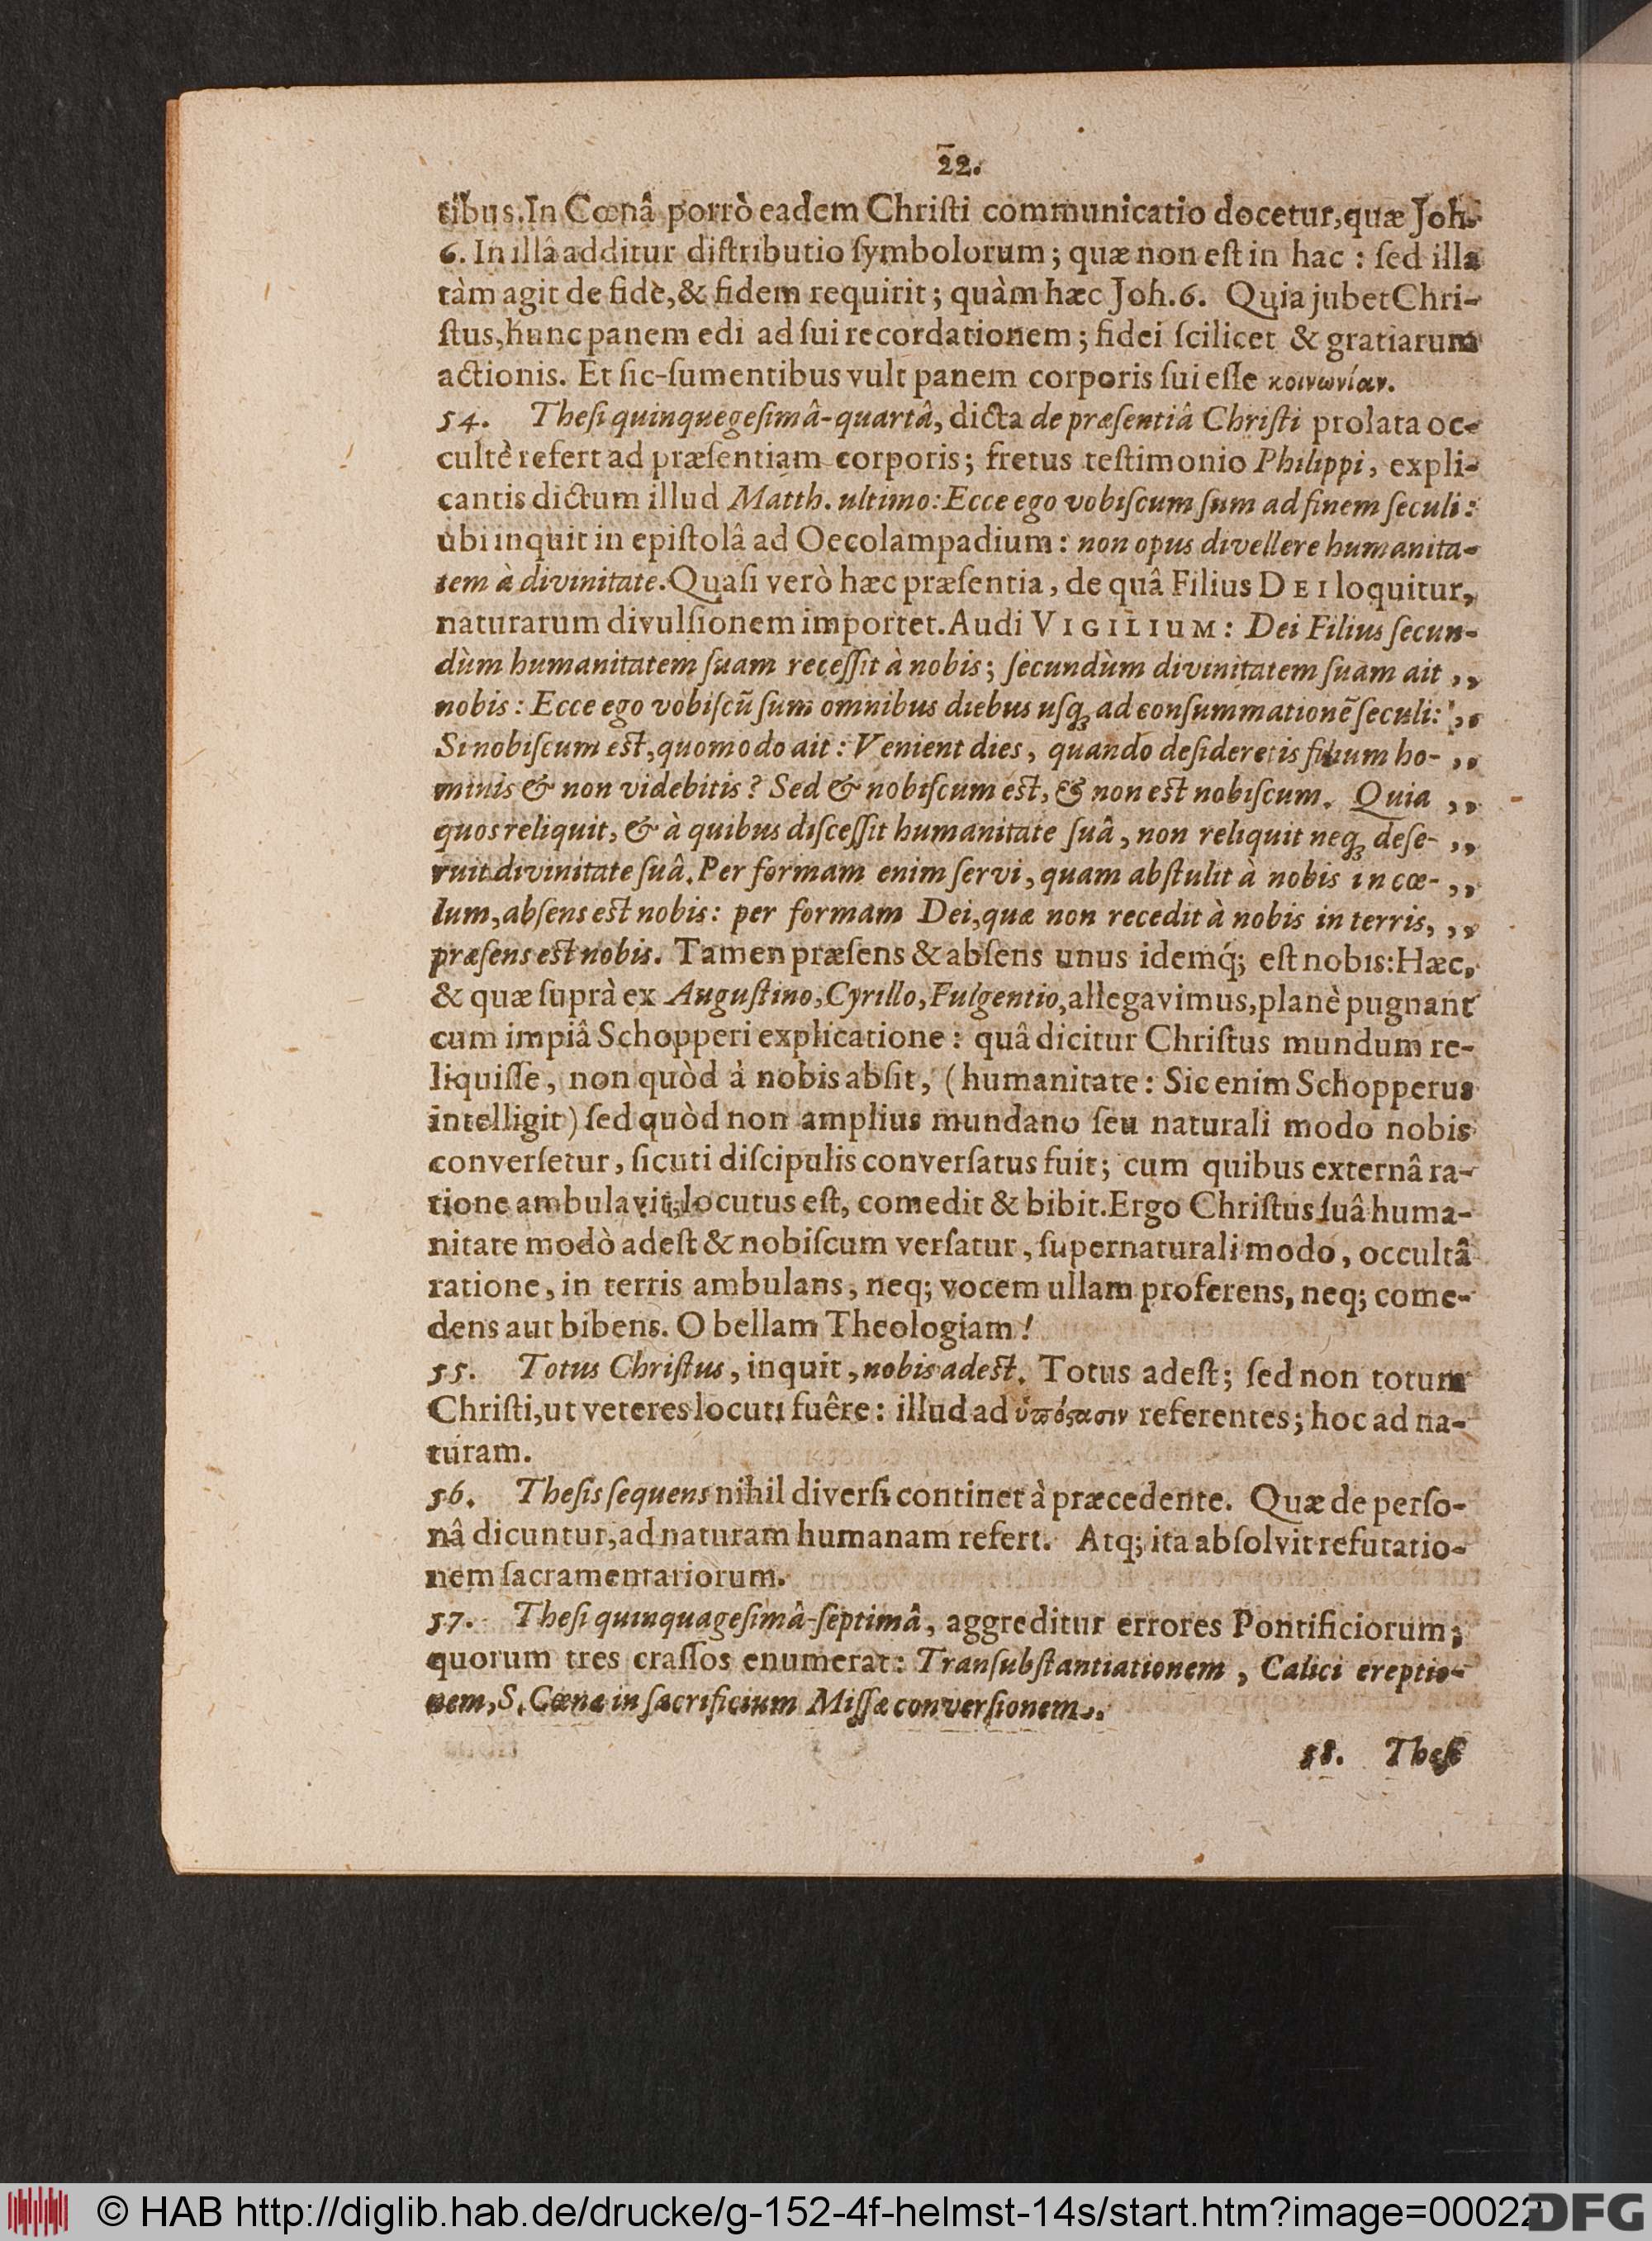 22.
tibus. In Cœnâ porrò eadem Chriſti communicatio docetur, quæ Joh.
6. In illâ additur diſtributio ſymbolorum; quæ non eſt in hac: ſed illa
tàm agit de fide, & fidem requirit; quàm hæc Joh. 6. Quia jubet Chri-
ſtus, hunc panem edi ad ſui recordationem; fidei ſcilicet & gratiarum
actionis. Et ſic-ſumentibus vult panem corporis ſui eſſe κοινωνίαν.
54. Theſi quinquegeſimâ-quartâ, dicta de præſentiâ Chriſti prolata oc-
cultè refert ad præſentiam corporis; fretus teſtimonio Philippi, expli-
cantis dictum illud Matth. ultimo: Ecce ego vobiſcum ſum ad finem ſeculi:
ubi inquit in epiſtolâ ad Oecolampadium: non opus divellere humanita-
tem à divinitate. Quaſi verò hæc præſentia, de quâ Filius DEI loquitur,
naturarum divulſionem importet. Audi VIGILIUM: Dei Filius ſecun-
dùm humanitatem ſuam receſſit à nobis; ſecundùm divinitatem ſuam ait ,,
nobis: Ecce ego vobiſcũ ſum omnibus diebus uſq; ad conſummationẽ ſeculi: ,,
Si nobiſcum eſt, quomodo ait: Venient dies, quando deſideretis filium ho- ,,
minis & non videbitis? Sed & nobiſcum eſt, & non eſt nobiſcum. Quia ,,
quos reliquit, & à quibus diſceſſit humanitate ſuâ, non reliquit neq; deſe- ,,
ruit divinitate ſuâ. Per formam enim ſervi, quam abſtulit à nobis in cœ- ,,
lum, abſens eſt nobis: per formam Dei, quæ non recedit à nobis in terris, ,,
præſens eſt nobis. Tamen præſens & abſens unus idemq́; eſt nobis: Hæc,
& quæ ſuprà ex Auguſtino, Cyrillo, Fulgentio, allegavimus, planè pugnant
cum impiâ Schopperi explicatione: quâ dicitur Chriſtus mundum re-
liquiſſe, non quòd à nobis abſit, (humanitate: Sic enim Schopperus
intelligit) ſed quòd non amplius mundano ſeu naturali modo nobis
converſetur, ſicuti diſcipulis converſatus fuit; cum quibus externâ ra-
tione ambulavit, locutus eſt, comedit & bibit. Ergo Chriſtus ſuâ huma-
nitate modò adeſt & nobiſcum verſatur, ſupernaturali modo, occultâ
ratione, in terris ambulans, neq; vocem ullam proferens, neq; come-
dens aut bibens. O bellam Theologiam!
55. Totus Chriſtus, inquit, nobis adeſt. Totus adeſt; ſed non totum
Chriſti, ut veteres locuti fuêre: illud ad ὑπόστασιν referentes; hoc ad na-
turam.
56. Theſis ſequens nihil diverſi continet à præcedente. Quæ de perſo-
nâ dicuntur, ad naturam humanam refert. Atq; ita abſolvit refutatio-
nem ſacramentariorum.
57. Theſi quinquageſimâ-ſeptimâ, aggreditur errores Pontificiorum;
quorum tres craſſos enumerat: Tranſubſtantiationem, Calici ereptio-
nem, S. Cœnæ in ſacrificium Miſſæ converſionem.
58. Theſi
© HAB http://diglib.hab.de/drucke/g-152-4f-helmst-14s/start.htm?image=00022
DFG